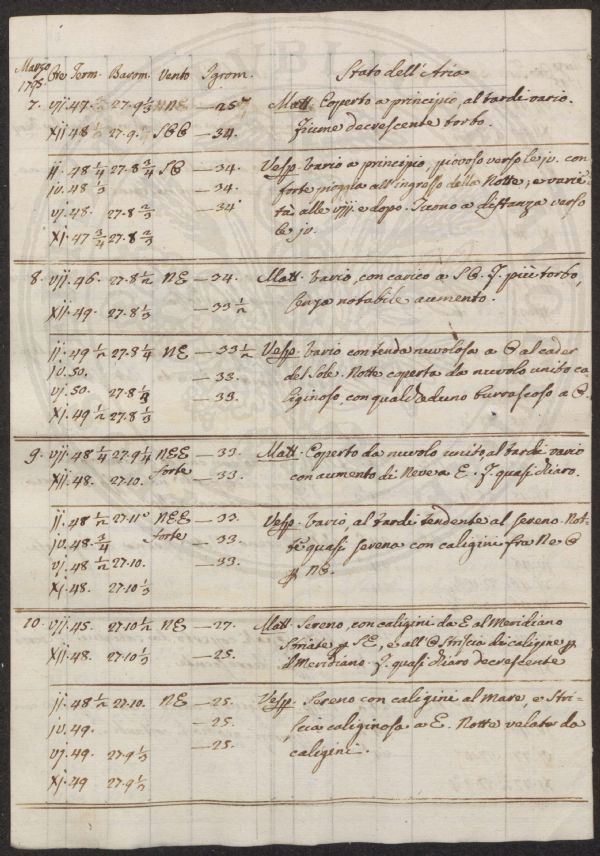 Marzo
1795. Ore Term. Barom. Vento Igrom. Stato dell'Aria
7. vij. 47. 27.9 1/3 NE — 25 Matt. Coperto a principio, al tardi vario.
xij. 48 27.9. SEE — 34. Fiume decrescente torbo.
ij. 48 1/4 27.8 3/4 SE — 34. Vesp. Vario a principio, piovoso verso le jv. con
jv. 48 1/3 — 34. forte pioggia all'ingresso della Notte, e varie-
vj. 48. 27.8 2/3 — 34 tà alle viij. e dopo. Tuono a distanza verso
xj. 47 3/4 27.8 2/3 le jv.
8. vij. 46. 27.8 1/2 NE — 34. Matt. Vario, con carico a SE. F. più torbo,
xij. 49. 27.8 1/3 — 33 1/2 senza notabile aumento.
ij. 49 1/2 27.8 1/4 NE — 33 1/2 Vesp. Vario con tenda nuvolosa a E al cader
jv. 50. — 33. del Sole. Notte coperta da nuvolo unito ca-
vj. 50. 27.8 1/3 — 33. liginoso, con qualcheduno burrascoso a E.
xj. 49 1/2 27.8 1/3
9. vij. 48 1/4 27.9 1/4 NEE — 33. Matt. Coperto da nuvolo unito, al tardi vario
xij. 48. 27.10. forte — 33. con aumento di Neve a E. F. quasi chiaro.
ij. 48 1/2 27.11 NEE — 33. Vesp. Vario, al tardi tendente al sereno. Not-
jv. 48. 3/4 forte — 33. te quasi serena con caligini fra Ne E
vj. 48 1/2 27.10. — 33. p NE.
xj. 48. 27.10 1/3
10. vij. 45. 27.10 1/2 NE — 27. Matt. Sereno, con caligini da E al Meridiano
striate p SE, e all'E striscia di caligine p
xij. 48. 27.10 1/3 — 25. il Meridiano. F. quasi chiaro decrescente
ij. 48 1/2 27.10. NE — 25. Vesp. Sereno con caligini al Mare, e Stri-
jv. 49. — 25. scia caliginosa a E. Notte velata da
vj. 49. 27.9 1/2 — 25. caligini.
xj. 49 27.9 1/2